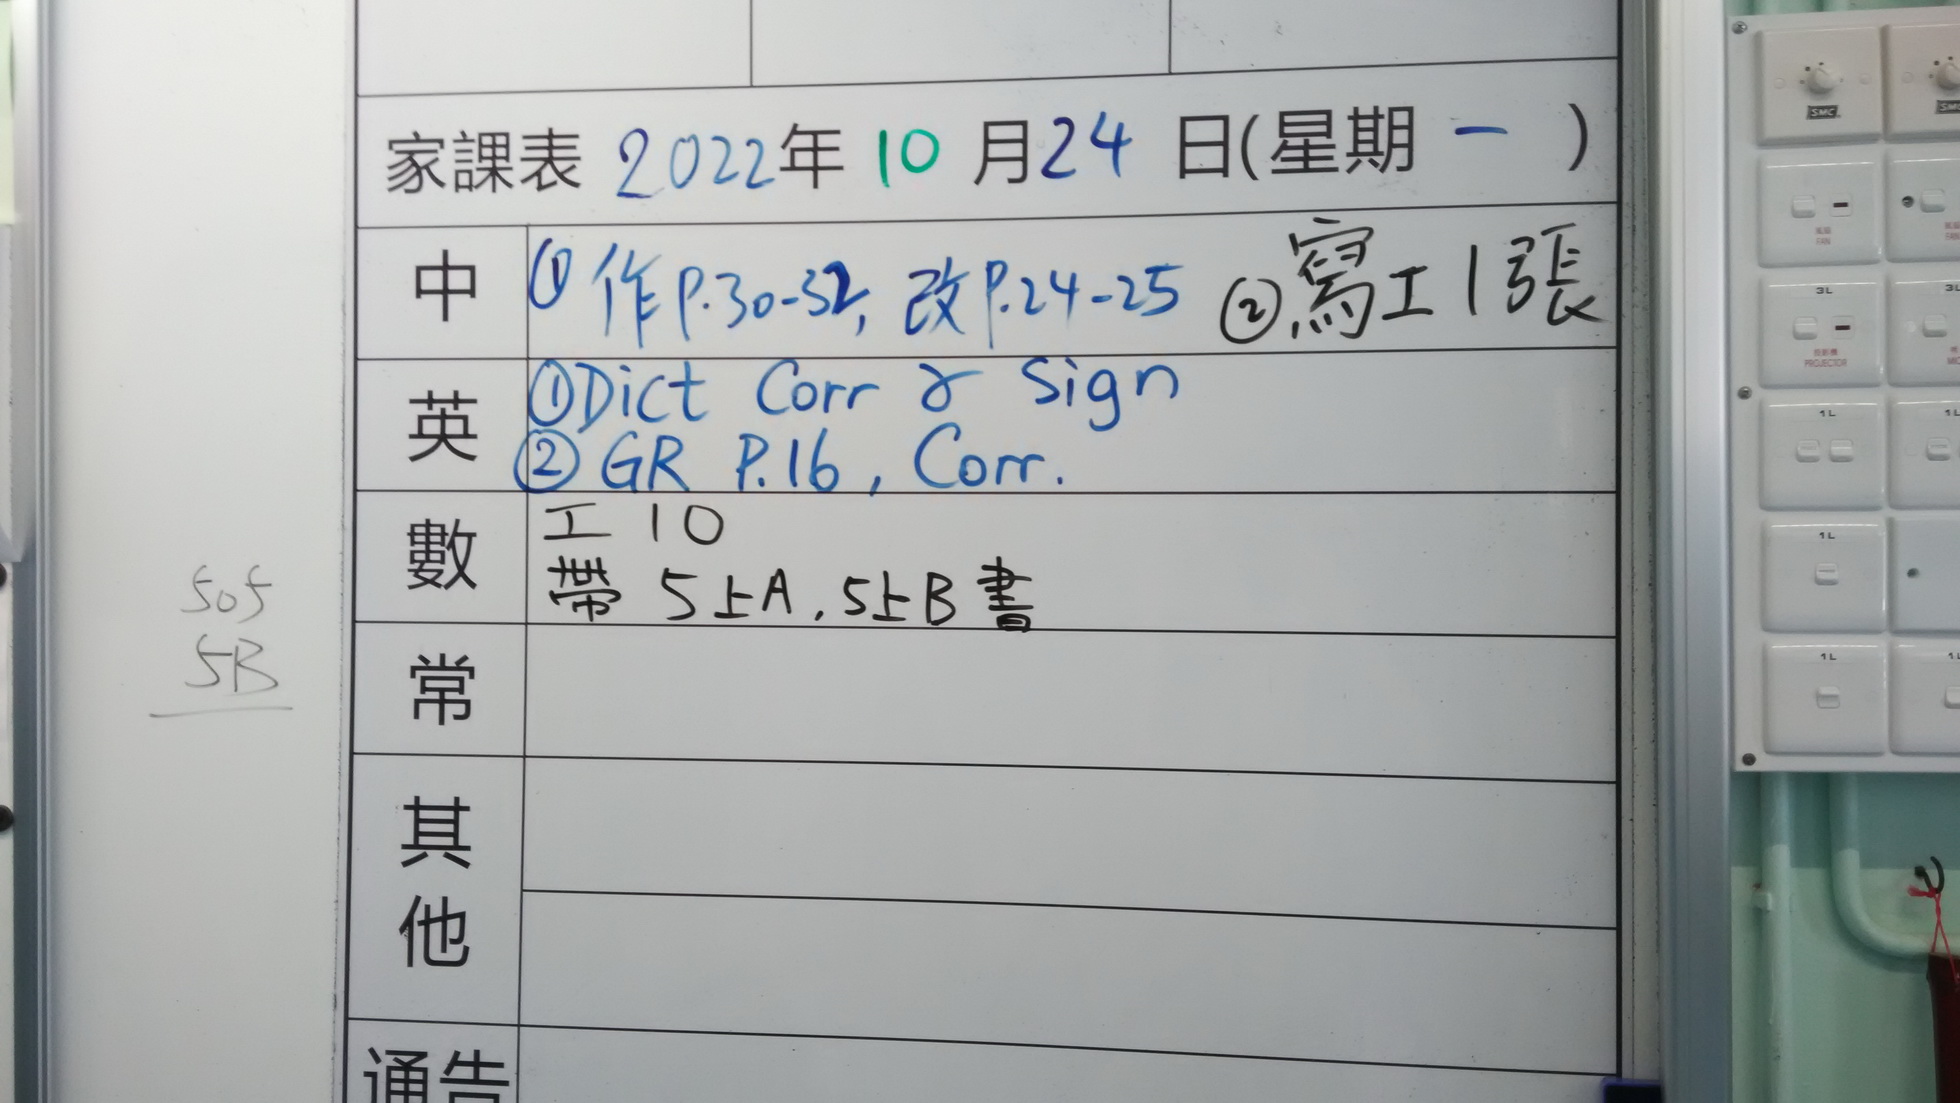 家課表 2022年 10 月 24 日(星期 一 )
中 ① 作 P.30-32, 改 P.24-25 ②. 寫工 1 張
英 ① Dict Corr & Sign
② GR P.16, Corr.
數 工 10
帶 5上A, 5上B 書
常
其他
通告
505
5B
SMC
風扇
FAN
3L
投影機
PROJECTOR
1L
1L
1L